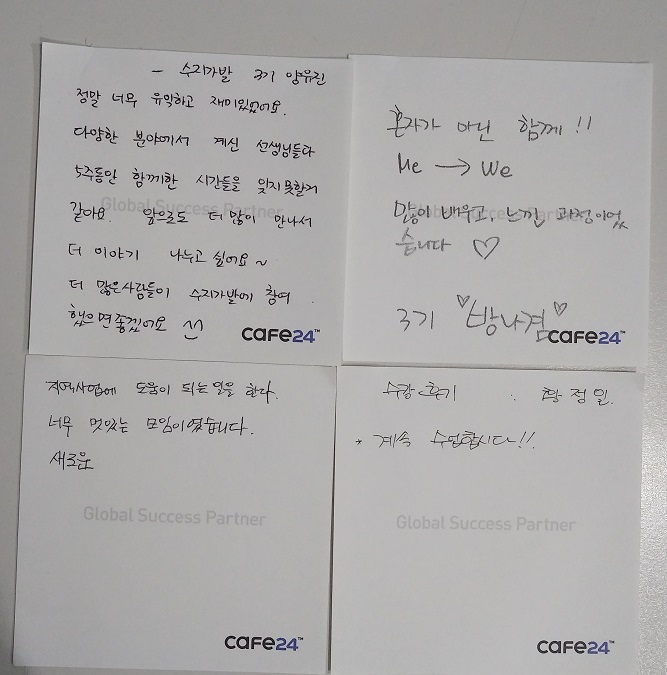 - 수지가발 3기 양유진
정말 너무 유익하고 재미있었어요.
다양한 분야에서 계신 선생님들과
5주동안 함께한 시간들을 잊지 못할거
같아요. 앞으로도 더 많이 만나서
더 이야기 나누고 싶어요~
더 많은사람들이 수지가발에 참여
했으면좋겠어요 ^^
Global Success Partner
cafe24™
혼자가 아닌 함께!!
Me → We
많이 배우고, 느낀 과정이었
습니다 ♡
3기 ♡방나겸♡
Global Success Partner
cafe24™
지역사업에 도움이 되는일을 한다.
너무 멋있는 모임이였습니다.
새로운
Global Success Partner
cafe24™
수강 후기 황정일.
* 계속 수업합시다!!
Global Success Partner
cafe24™